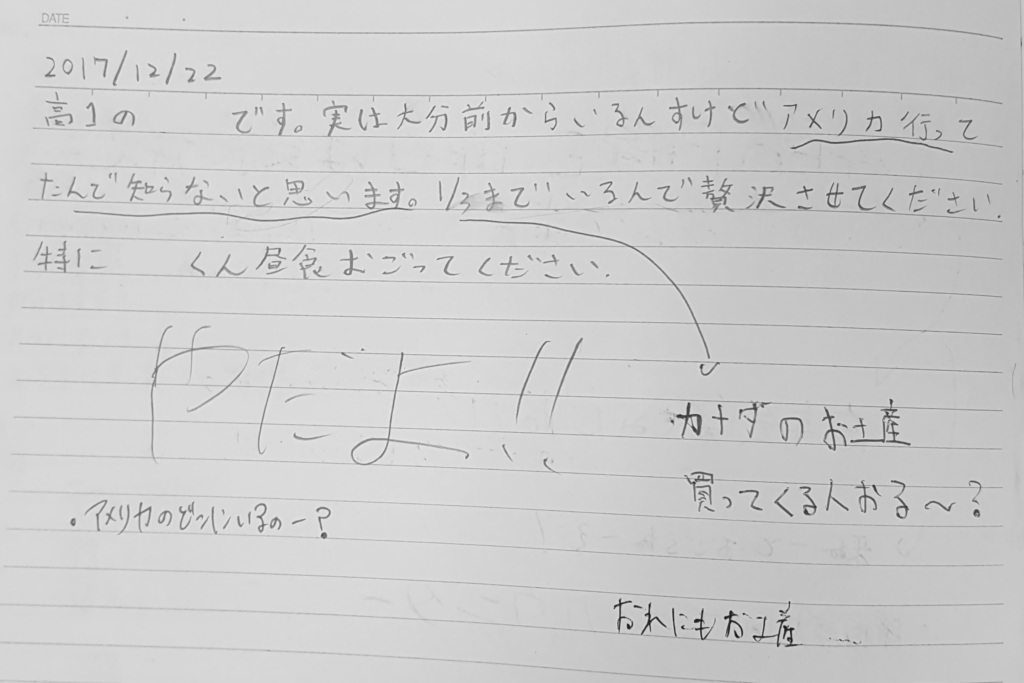 DATE
2017/12/22
高1の です。実は大分前からいるんすけど アメリカ行って
たんで知らないと思います。1/3までいるんで贅沢させてください.
特に くん昼食おごってください.
やだよ!!
カナダのお土産
買ってくる人おる〜?
・アメリカのどこにいるのー?
おれにもお土産……